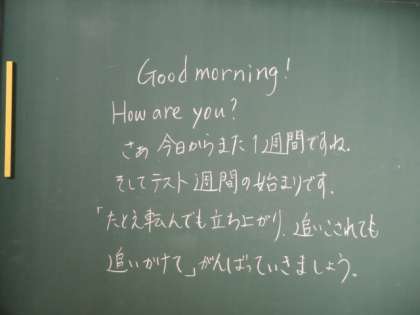 Good morning!
How are you?
さぁ 今日からまた1週間ですね。
そしてテスト週間の始まりです。
「たとえ転んでも立ち上がり、追いこされても
追いかけて」がんばっていきましょう。